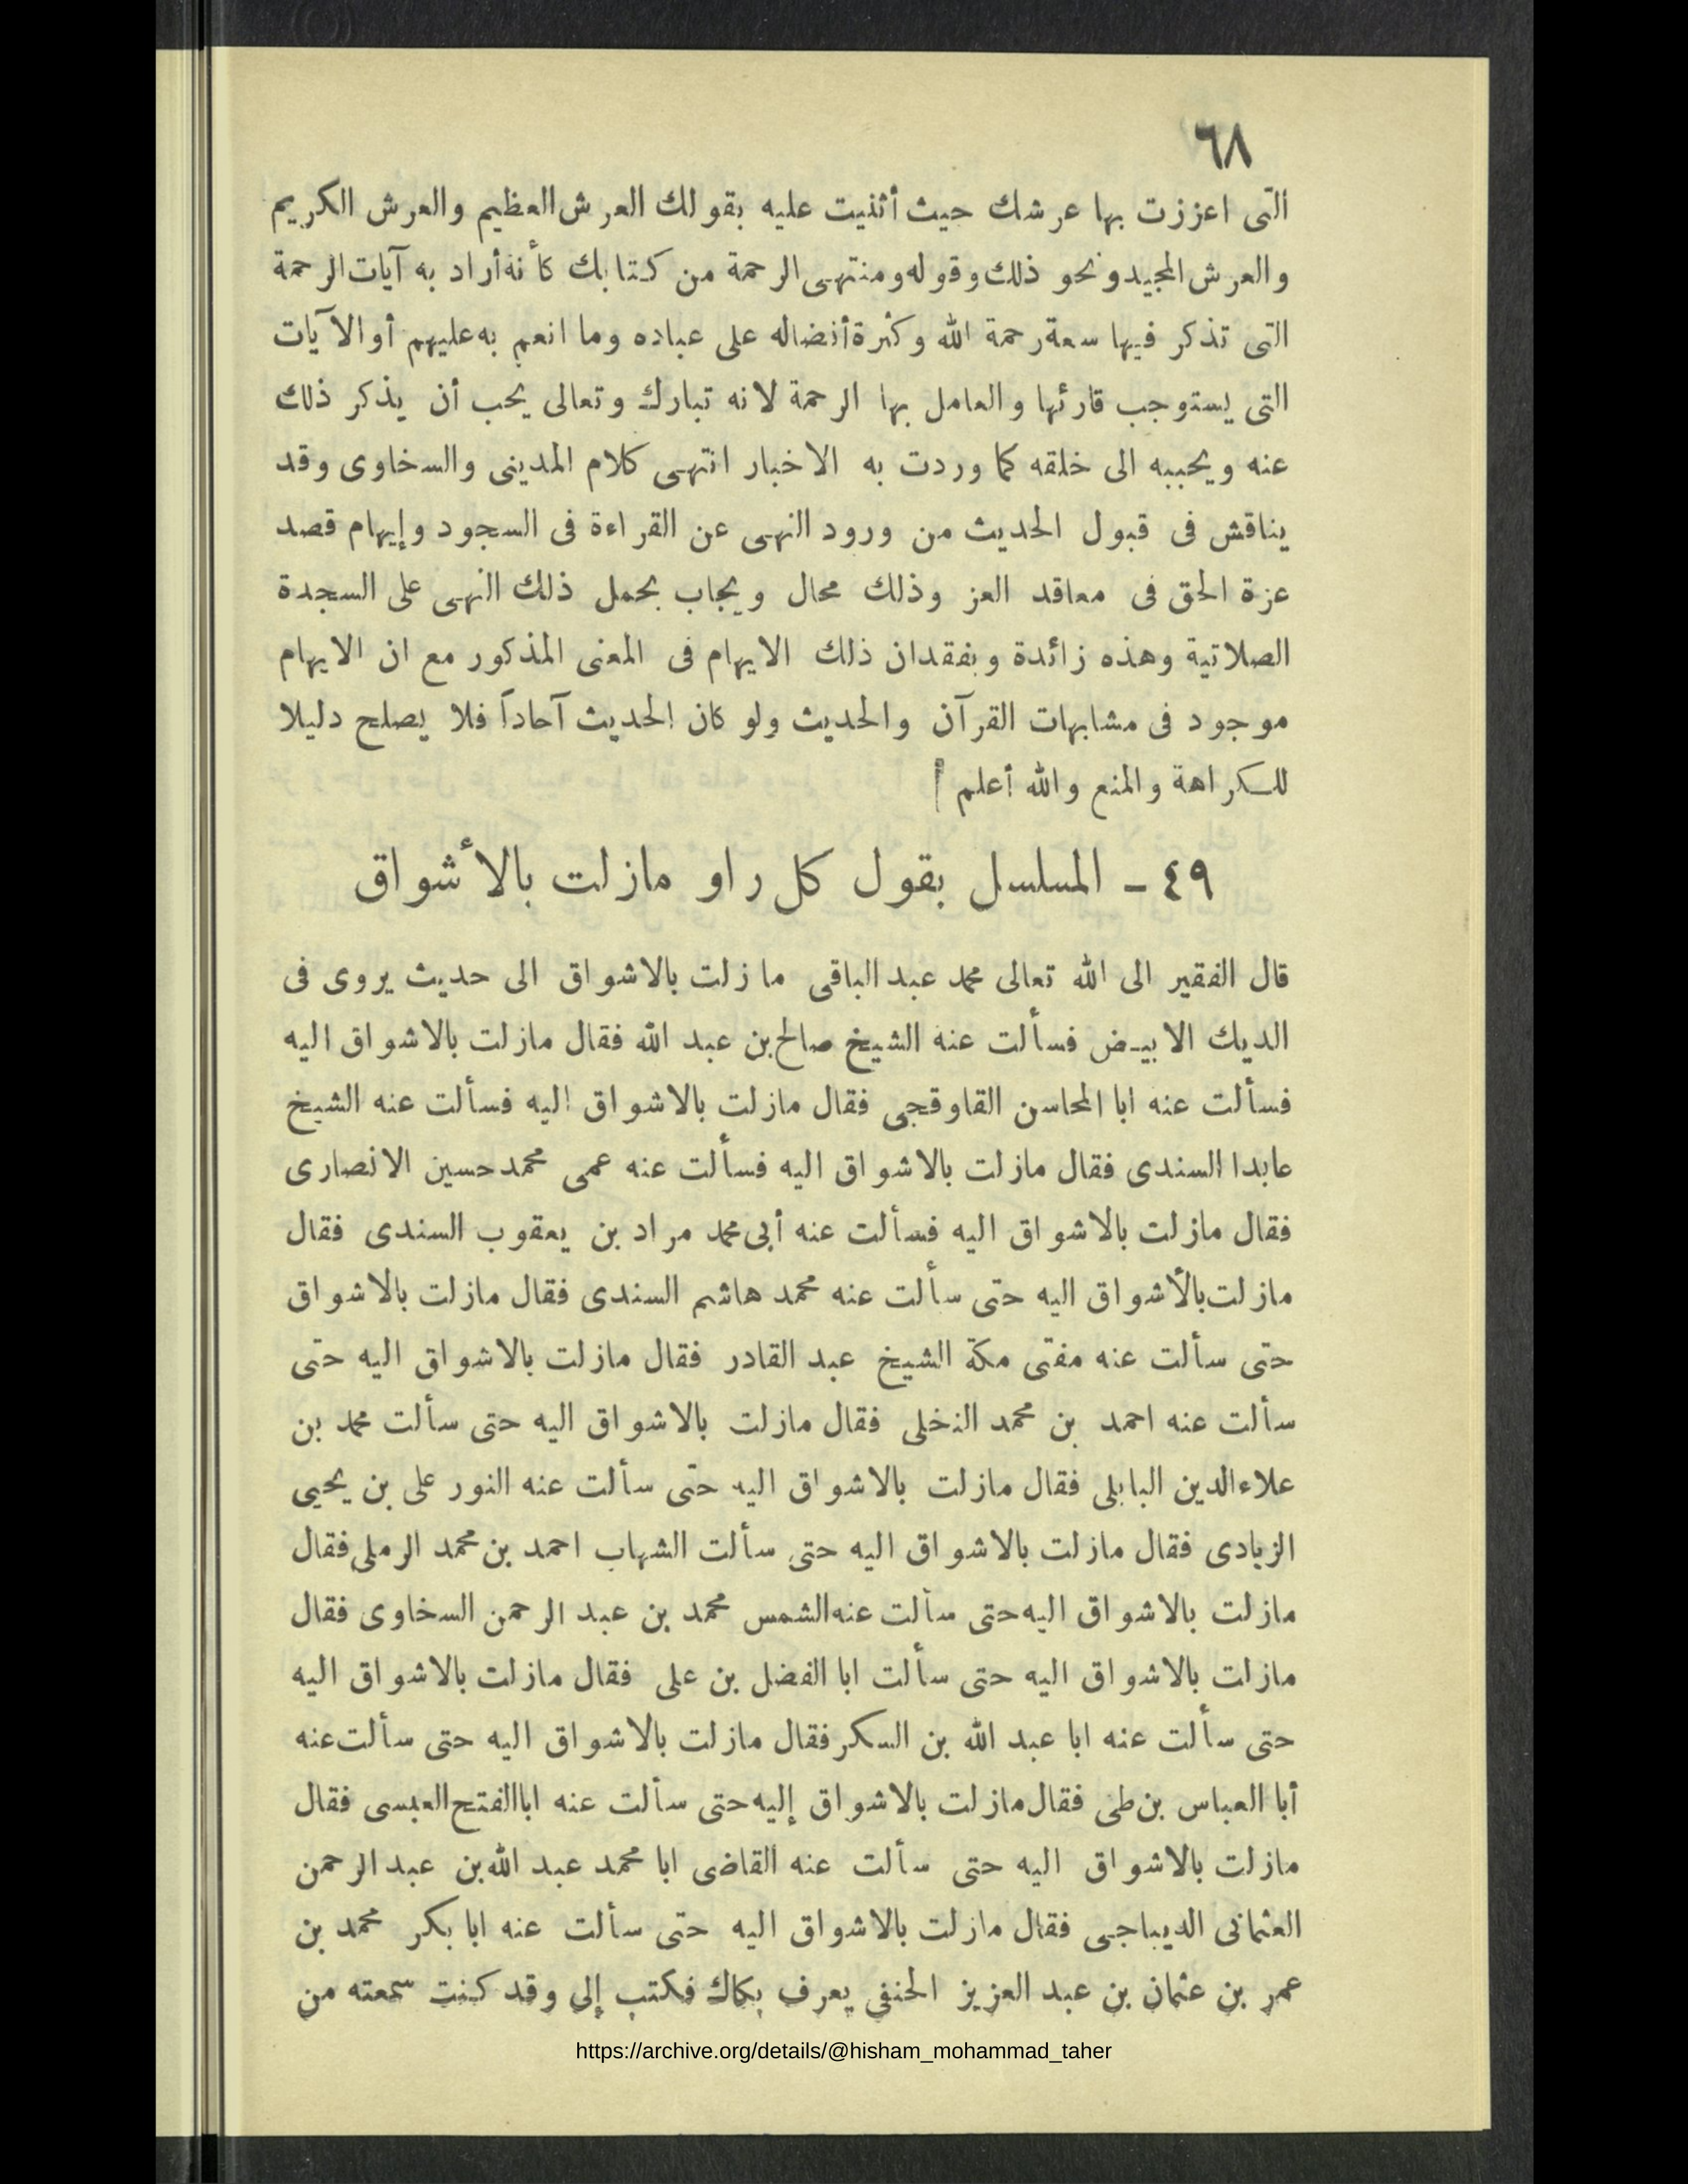 ٦٨
التى اعززت بها عرشك حيث أثنيت عليه بقولك العرش العظيم والعرش الكريم
والعرش المجيد ونحو ذلك وقوله ومنتهى الرحمة من كتابك كأنه أراد به آيات الرحمة
التى تذكر فيها سعة رحمة الله وكثرة أفضاله على عباده وما انعم به عليهم أو الآيات
التى يستوجب قارئها والعامل بها الرحمة لانه تبارك وتعالى يحب أن يذكر ذلك
عنه ويحببه الى خلقه كما وردت به الاخبار انتهى كلام المدينى والسخاوى وقد
يناقش فى قبول الحديث من ورود النهى عن القراءة فى السجود وإيهام قصد
عزة الحق فى معاقد العز وذلك محال ويجاب بحمل ذلك النهى على السجدة
الصلاتية وهذه زائدة وبفقدان ذلك الايهام فى المعنى المذكور مع ان الايهام
موجود فى مشابهات القرآن والحديث ولو كان الحديث آحاداً فلا يصلح دليلا
للكراهة والمنع والله أعلم
٤٩ - المسلسل بقول كل راو مازلت بالأشواق
قال الفقير الى الله تعالى محمد عبد الباقى ما زلت بالاشواق الى حديث يروى فى
الديك الابيض فسألت عنه الشيخ صالح بن عبد الله فقال مازلت بالاشواق اليه
فسألت عنه ابا المحاسن القاوقجى فقال مازلت بالاشواق اليه فسألت عنه الشيخ
عابدا السندى فقال مازلت بالاشواق اليه فسألت عنه عمى محمد حسين الانصارى
فقال مازلت بالاشواق اليه فسألت عنه أبى محمد مراد بن يعقوب السندى فقال
مازلت بالأشواق اليه حتى سألت عنه محمد هاشم السندى فقال مازلت بالاشواق
حتى سألت عنه مفتى مكة الشيخ عبد القادر فقال مازلت بالاشواق اليه حتى
سألت عنه احمد بن محمد النخلى فقال مازلت بالاشواق اليه حتى سألت محمد بن
علاء الدين البابلى فقال مازلت بالاشواق اليه حتى سألت عنه النور على بن يحيى
الزيادى فقال مازلت بالاشواق اليه حتى سألت الشهاب احمد بن محمد الرملى فقال
مازلت بالاشواق اليه حتى سألت عنه الشمس محمد بن عبد الرحمن السخاوى فقال
مازلت بالاشواق اليه حتى سألت ابا الفضل بن على فقال مازلت بالاشواق اليه
حتى سألت عنه ابا عبد الله بن السكر فقال مازلت بالاشواق اليه حتى سألت عنه
أبا العباس بن طى فقال مازلت بالاشواق إليه حتى سألت عنه ابا الفتح العبسى فقال
مازلت بالاشواق اليه حتى سألت عنه القاضى ابا محمد عبد الله بن عبد الرحمن
العثمانى الديباجى فقال مازلت بالاشواق اليه حتى سألت عنه ابا بكر محمد بن
عمر بن عثمان بن عبد العزيز الحنفى يعرف بكاك فكتب إلى وقد كنت سمعته من
https://archive.org/details/@hisham_mohammad_taher